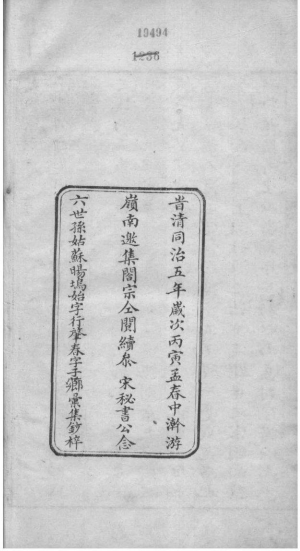 19494
1236
旹清同治五年歲次丙寅孟春中澣游
嶺南邀集閤宗仝閱續叅宋秘書公念
六世孫姑蘇暘塢始字行肇春字手鄉彙集鈔梓